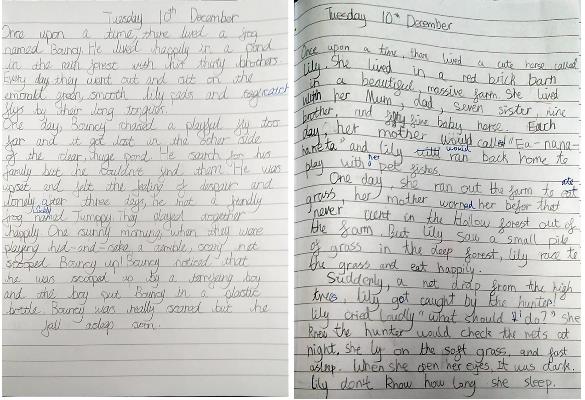 Tuesday 10th December
Once upon a time, there lived a frog
named Bouncy. He lived happily in a pond
in the rain forest with his thirty brothers.
Every day they went out and sat on the
emerald green, smooth lily pads and catch
flys by their long tongues.
One day, Bouncy chased a playful fly too
far and it got lost in the other side
of the clear, huge pond. He search for his
family but he couldn't find them. He was
upset and felt the feeling of despair and
lonely. After three days, he met a friendly
frog named Jumppy. They played together
happily. One sunny morning, when they were
playing hid-and-seke, a terrible, scary net
scooped Bouncy up! Bouncy noticed that
he was scooped up by a terrifying boy
and the boy put Bouncy in a plastic
bottle. Bouncy was really scared but he
fall asleep soon.
Tuesday 10th December
Once upon a time, there lived a cute horse called
Lily. She lived in a red brick barn
in a beautiful, massive farm. She lived
with her Mum, dad, seven sister, nine
brother, and fifty five baby horse. Each
day, her mother would called "Ea-nana-
naneta" and Lily would ran back home to
play with her pet fishes.
One day, she ran out the farm to ate
grass, her mother worned her befor that
never went in the Hollow forest out of
the farm. But Lily saw a small pile
of grass in the deep forest, Lily race to
the grass and eat happily.
Suddenly, a net drop from the high
tree, Lily got caught by the hunter!
Lily cried loudly "what should I do?" she
knew the hunter would check the nets at
night, she ly on the soft grass, and fast
asleep. When she open her eyes, It was dark.
Lily don't know how long she sleep.